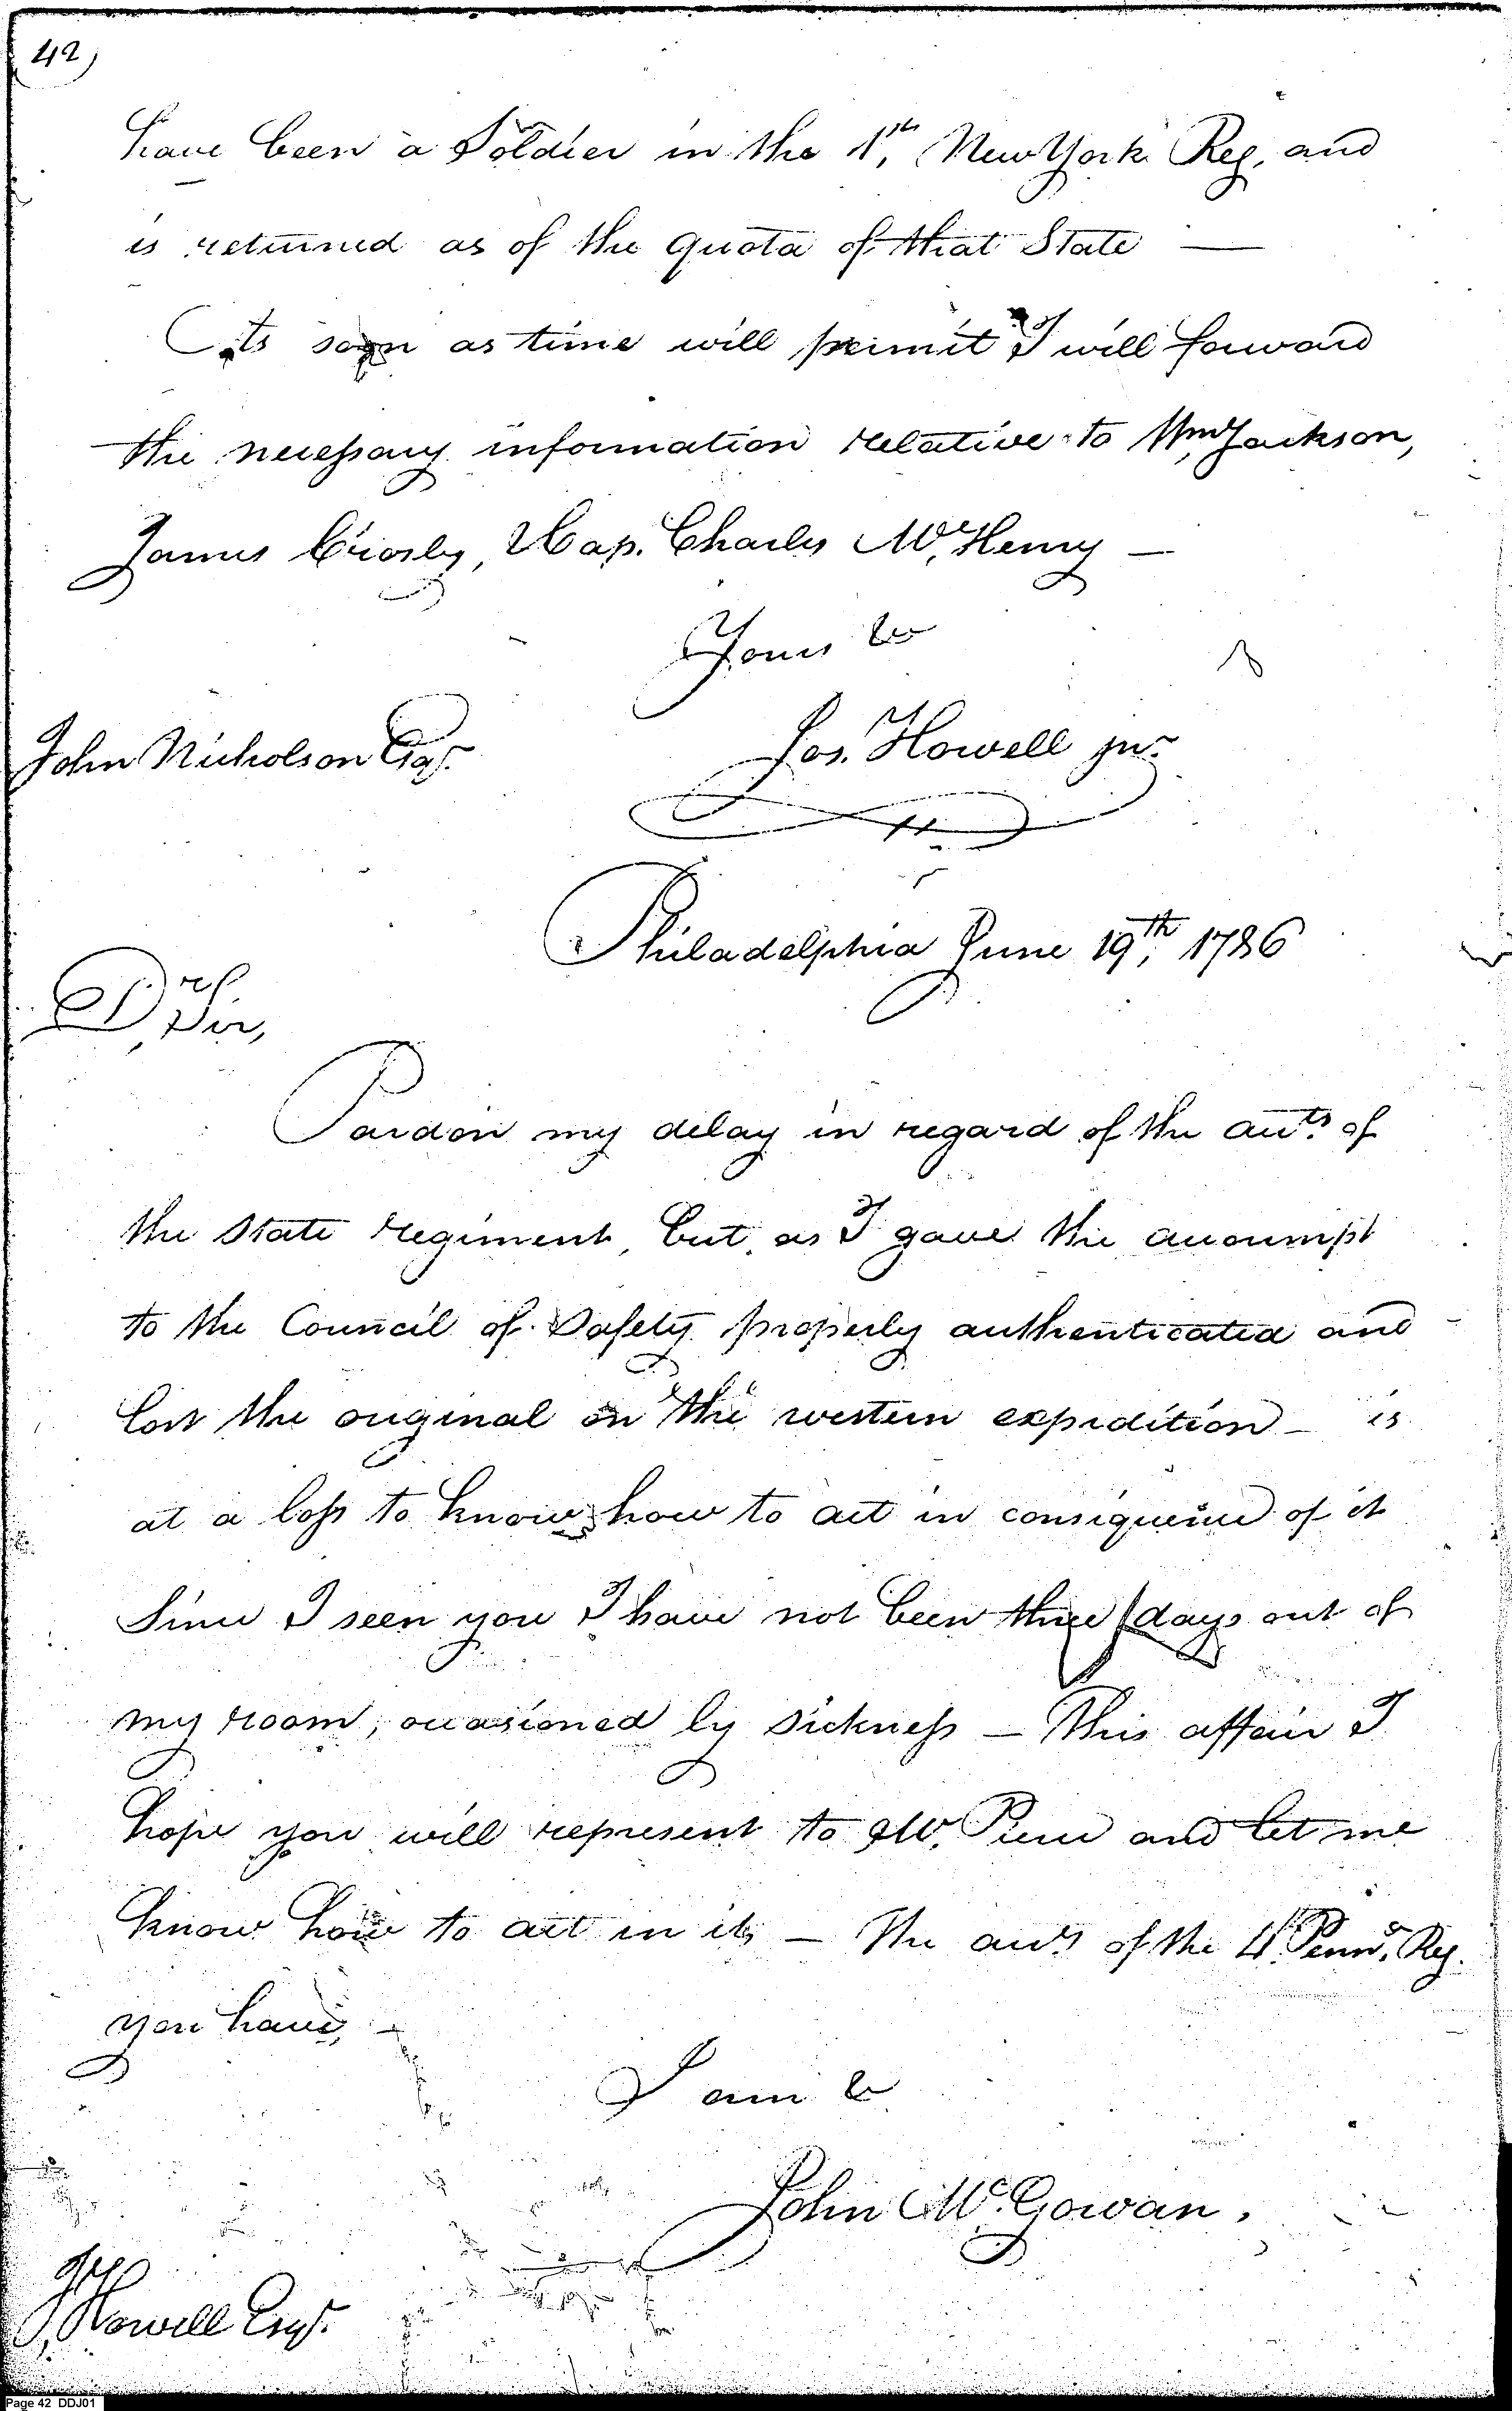 42)
have been a Soldier in the 1st, New York Reg, and
is returned as of the quota of that State —
As soon as time will permit I will forward
the necessary information relative to Wm, Jackson,
James Crosby, & Cap. Charles Mc, Henry —
Yours &c
Jos. Howell jnr
John Nicholson Esqr.
Philadelphia June 19th, 1786
Dr Sir,
Pardon my delay in regard of the accts of
the State regiment, but, as I gave the accoumpt
to the Council of Safety properly authenticated and
lost the original on the western expedition — is
at a loss to know how to act in consequence of it
Since I seen you I have not been three days out of
my room, occasioned by sickness — This affair I
hope you will represent to Mr, Pierce and let me
know how to act in it, — The accts of the 4th Penna, Reg.
you have, —
I am &c
John McGowan.
J, Howell Esqr.
Page 42 DDJ01